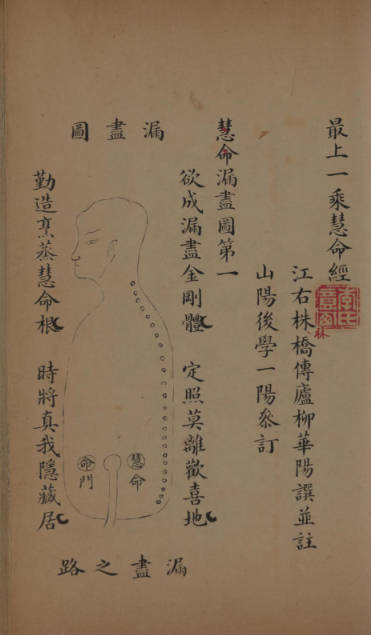 最上一乘慧命經
江右株橋傳廬柳華陽譔並註
山陽後學一陽叅訂
慧命漏盡圖第一
漏盡圖
欲成漏盡金剛體 定照莫離歡喜地
慧命
命門
勤造烹蒸慧命根 時將真我隱藏居
漏盡之路